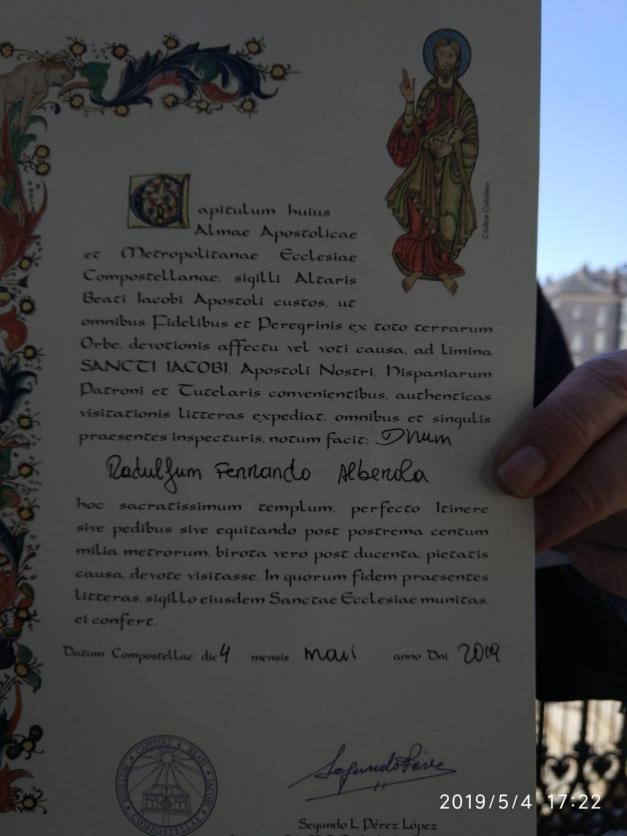 Capitulum huius
Almae Apostolicae
et Metropolitanae Ecclesiae
Compostellanae, sigilli Altaris
Beati Iacobi Apostoli custos, ut
omnibus Fidelibus et Peregrinis ex toto terrarum
Orbe, devotionis affectu vel voti causa, ad limina
SANCTI IACOBI, Apostoli Nostri, Hispaniarum
Patroni et Tutelaris convenientibus, authenticas
visitationis litteras expediat, omnibus et singulis
praesentes inspecturis, notum facit: Dnum
Radulfum Fernando Alberola
hoc sacratissimum templum, perfecto Itinere
sive pedibus sive equitando post postrema centum
milia metrorum, birota vero post ducenta, pietatis
causa, devote visitasse. In quorum fidem praesentes
litteras, sigillo eiusdem Sanctae Ecclesiae munitas,
ei confert.
Datum Compostellae die 4 mensis maii anno Dni 2019
Segundo L. Pérez López
2019/5/4 17:22